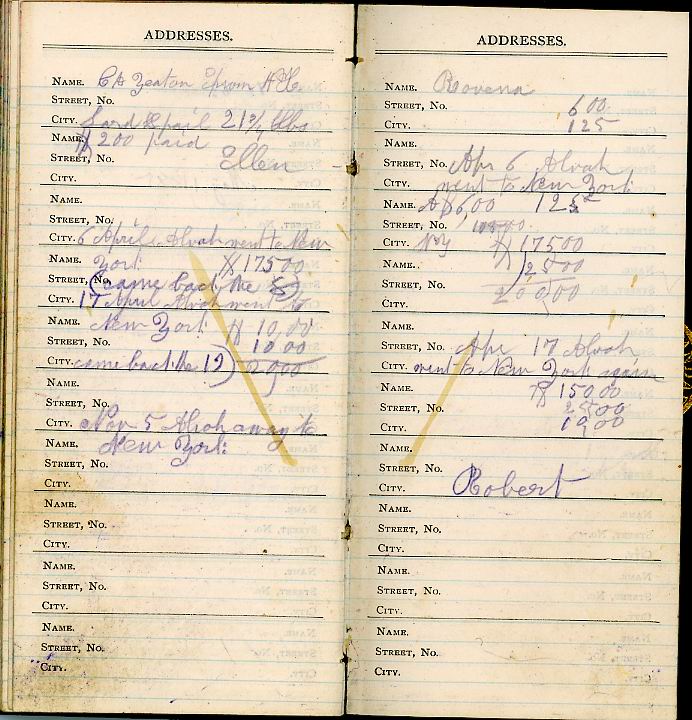 ADDRESSES.
NAME. CA Yeaton Epsom N H
STREET, NO.
CITY. Lard & pail 21 3/4 lbs
NAME. $200 paid
STREET, NO. Ellen
CITY.
NAME.
STREET, NO.
CITY. 6 April Alvah went to New
NAME. York $175 00
STREET, NO. (came back the
CITY. 17 April Alvah went to
NAME. New York $ 10,00
STREET, NO. 10 00
CITY. came back the 19) 20,00
NAME.
STREET, NO.
CITY. Nov 5 Alvah away to
NAME. New York
STREET, NO.
CITY.
NAME.
STREET, NO.
CITY.
NAME.
STREET, NO.
CITY.
NAME.
STREET, NO.
CITY.
ADDRESSES.
NAME. Rovena
STREET, NO. 6 00
CITY. 125
NAME.
STREET, NO. Apr 6 Alvah
CITY. went to New York
NAME. $6,00 125
STREET, NO.
CITY. NY $175 00
NAME. 25 00
STREET, NO. 200,00
CITY.
NAME.
STREET, NO. Apr 17 Alvah
CITY. went to New York again
NAME. $150,00
STREET, NO. 25,00
CITY. 10,00
NAME.
STREET, NO.
CITY. Robert
NAME.
STREET, NO.
CITY.
NAME.
STREET, NO.
CITY.
NAME.
STREET, NO.
CITY.